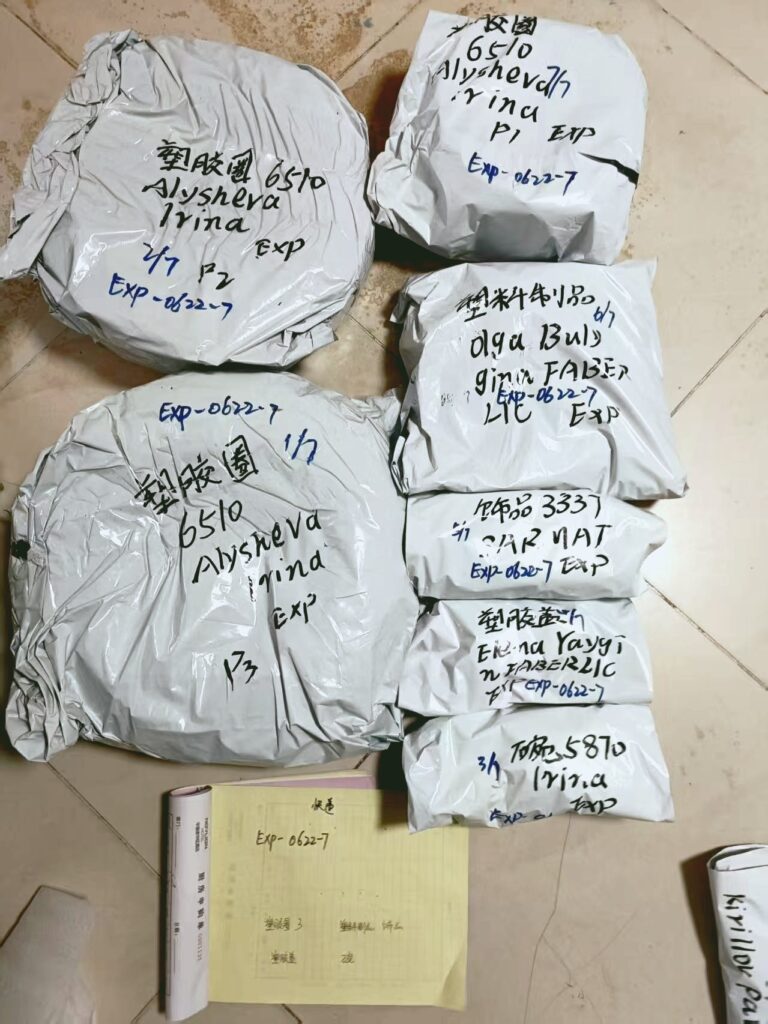 塑胶圈 6510
Alysheva
Irina
EXP
2/7 P2
EXP-0622-7
胶圈
6510
Alysheva 7/7
Irina
P1 EXP
EXP-0622-7
塑料制品
6/7
Olga Buly
gina FABER
EXP-0622-7
LIC EXP
EXP-0622-7
1/7
塑胶圈
6510
Alysheva
Irina
EXP
P3
饰品 3337
SAR MAT
EXP-0622-7 EXP
塑胶盖
Elena Yaygi
n FABERLIC
EXP-0622-7
5870
3/7 Irina
EXP
快递
EXP-0622-7
塑胶圈 3
塑胶盖
Kirillov Pa